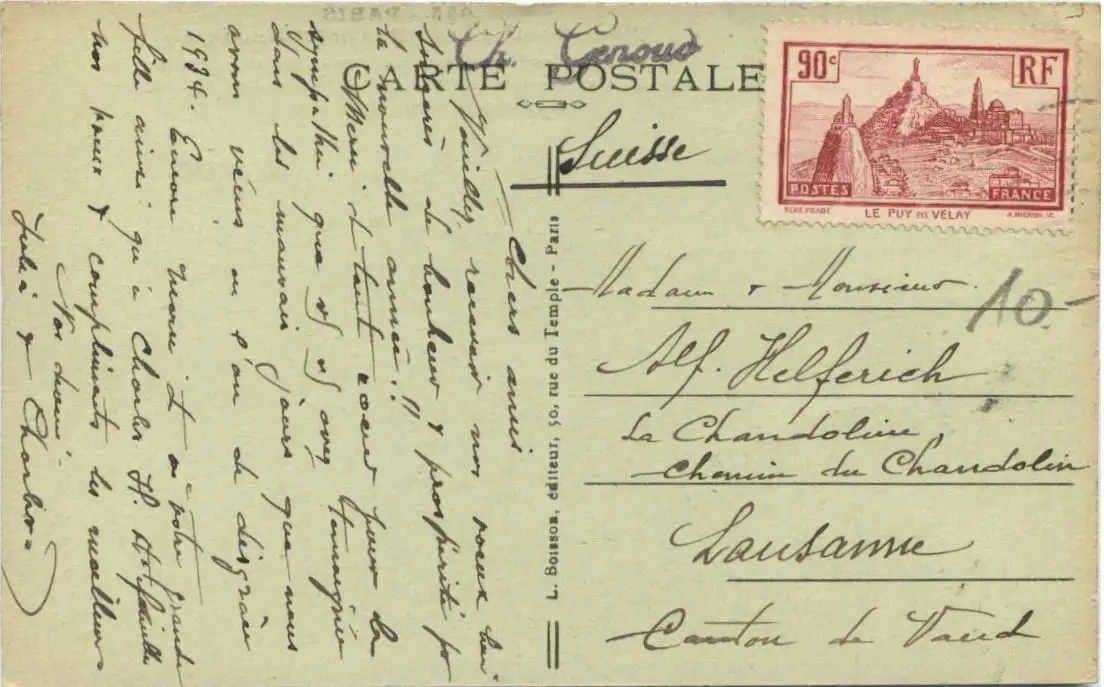 CARTE POSTALE
Ch. Genoud
Chers amis
Veuillez recevoir nos vœux bien
sincères de bonheur & prospérité pr
la nouvelle année!!
Merci de tout cœur pour la
sympathie que vs ns avez témoignée
dans les mauvais jours que nous
avons vécus en l'an de disgrâce
1934. Encore merci & à votre grande
fille ainsi qu'à Charles H. & famille
nos vœux & compliments les meilleurs
Vos dévoués
Julia & Charles
L. Boisson, éditeur, 50, rue du Temple - Paris
90c
RF
POSTES
FRANCE
LE PUY EN VELAY
Suisse
Madame & Monsieur
10-
Alf. Helferich
La Chandoline,
Chemin du Chandolin
Lausanne
Canton de Vaud